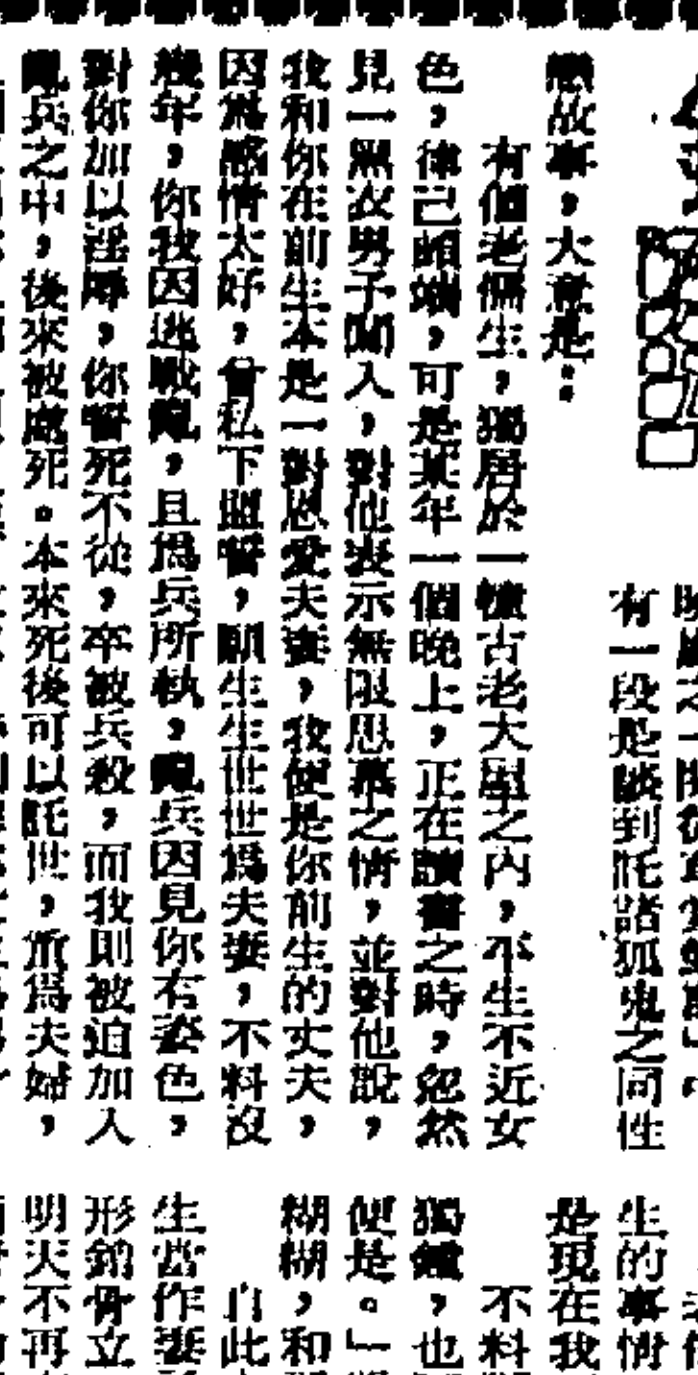 有一段是談到託諸狐鬼之同性
戀故事，大意是：
有個老儒生，獨居於一幢古老大屋之內，平生不近女
色，律己頗端，可是某年一個晚上，正在讀書之時，忽然
見一黑衣男子闖入，對他表示無限思慕之情，並對他說，
我和你在前生本是一對恩愛夫妻，我便是你前生的丈夫，
因為感情太好，曾私下盟誓，願生生世世爲夫妻，不料沒
幾年，你我因逃戰亂，且爲兵所執，亂兵因見你有姿色，
對你加以淫辱，你誓死不從，卒被兵殺，而我則被迫加入
亂兵之中，後來被處死。本來死後可以託世，重爲夫婦，
生的事情
是現在我
不料
獨鍾，也
便是。」
糊糊，和
自此
生當作妻
形銷骨立
明天不再